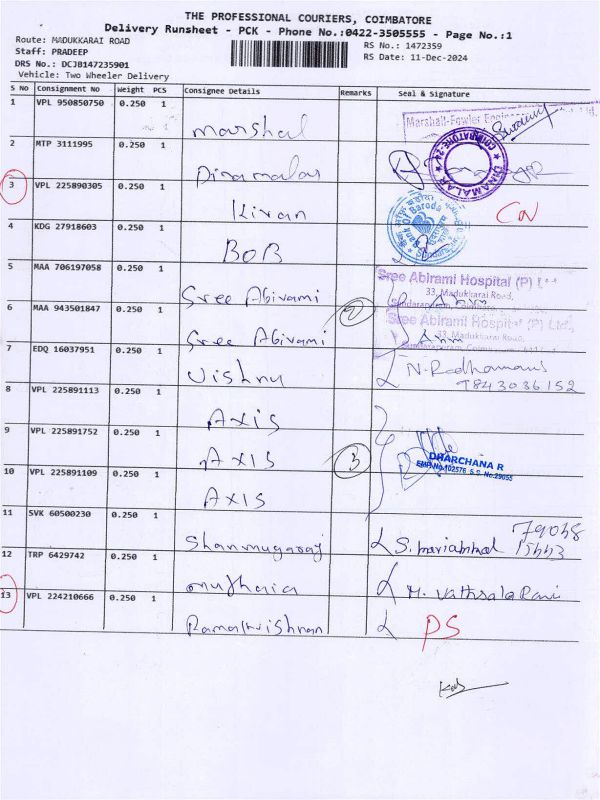 THE PROFESSIONAL COURIERS, COIMBATORE
Delivery Runsheet - PCK - Phone No.:0422-3505555 - Page No.:1
Route: MADUKKARAI ROAD
RS No.: 1472359
Staff: PRADEEP
RS Date: 11-Dec-2024
DRS No.: DCJB147235901
Vehicle: Two Wheeler Delivery
S No Consignment No Weight PCS Consignee Details Remarks Seal & Signature
1 VPL 950850750 0.250 1 Marshal Marshall-Fowler Ltd.
2 MTP 3111995 0.250 1 Dinamalar COIMBATORE 24 DINAMALAR
3 VPL 225890305 0.250 1 Kiran
4 KDG 27918603 0.250 1 BOB Bank of Baroda
5 MAA 706197058 0.250 1 Sree Abirami Sree Abirami Hospital (P) Ltd.,
33, Madukkarai Road,
6 MAA 943501847 0.250 1 Sree Abirami 2 Sree Abirami Hospital (P) Ltd.,
33, Madukkarai Road,
7 EDQ 16037951 0.250 1 Vishnu
7843036152
8 VPL 225891113 0.250 1 AXIS
9 VPL 225891752 0.250 1 AXIS 3 DHARCHANA R
EMP No.102576 S.S. No.29055
10 VPL 225891109 0.250 1 AXIS
11 SVK 60500230 0.250 1 Shanmugaraj
12 TRP 6429742 0.250 1 muthaia M. Vathsala Rani
13 VPL 224210666 0.250 1 Ramakrishnan PS